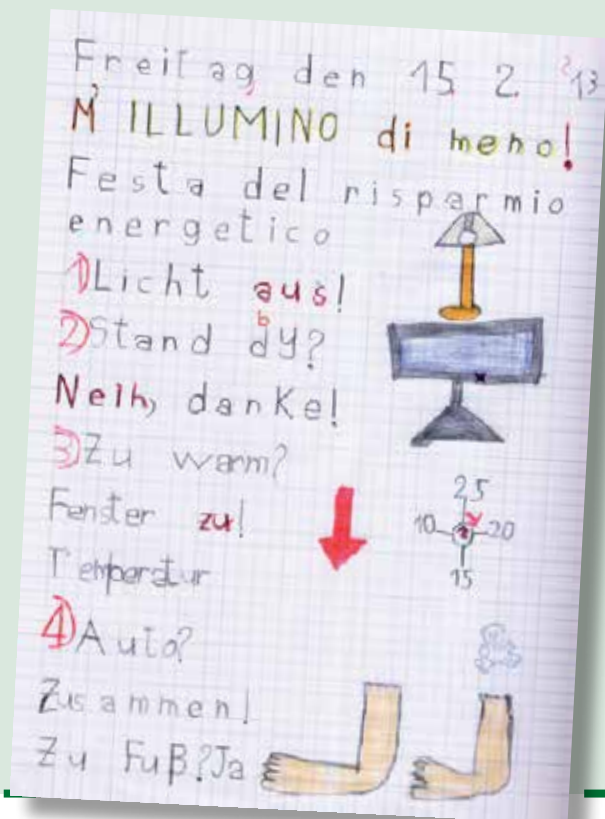 Freitag den 15. 2. '13
M'ILLUMINO di meno!
Festa del risparmio
energetico
1) Licht aus!
2) Stand dy?
b
Nein, danke!
3) Zu warm?
Fenster zu!
Temperatur
25
10 20
15
4) Auto?
Zusammen!
Zu Fuß? Ja